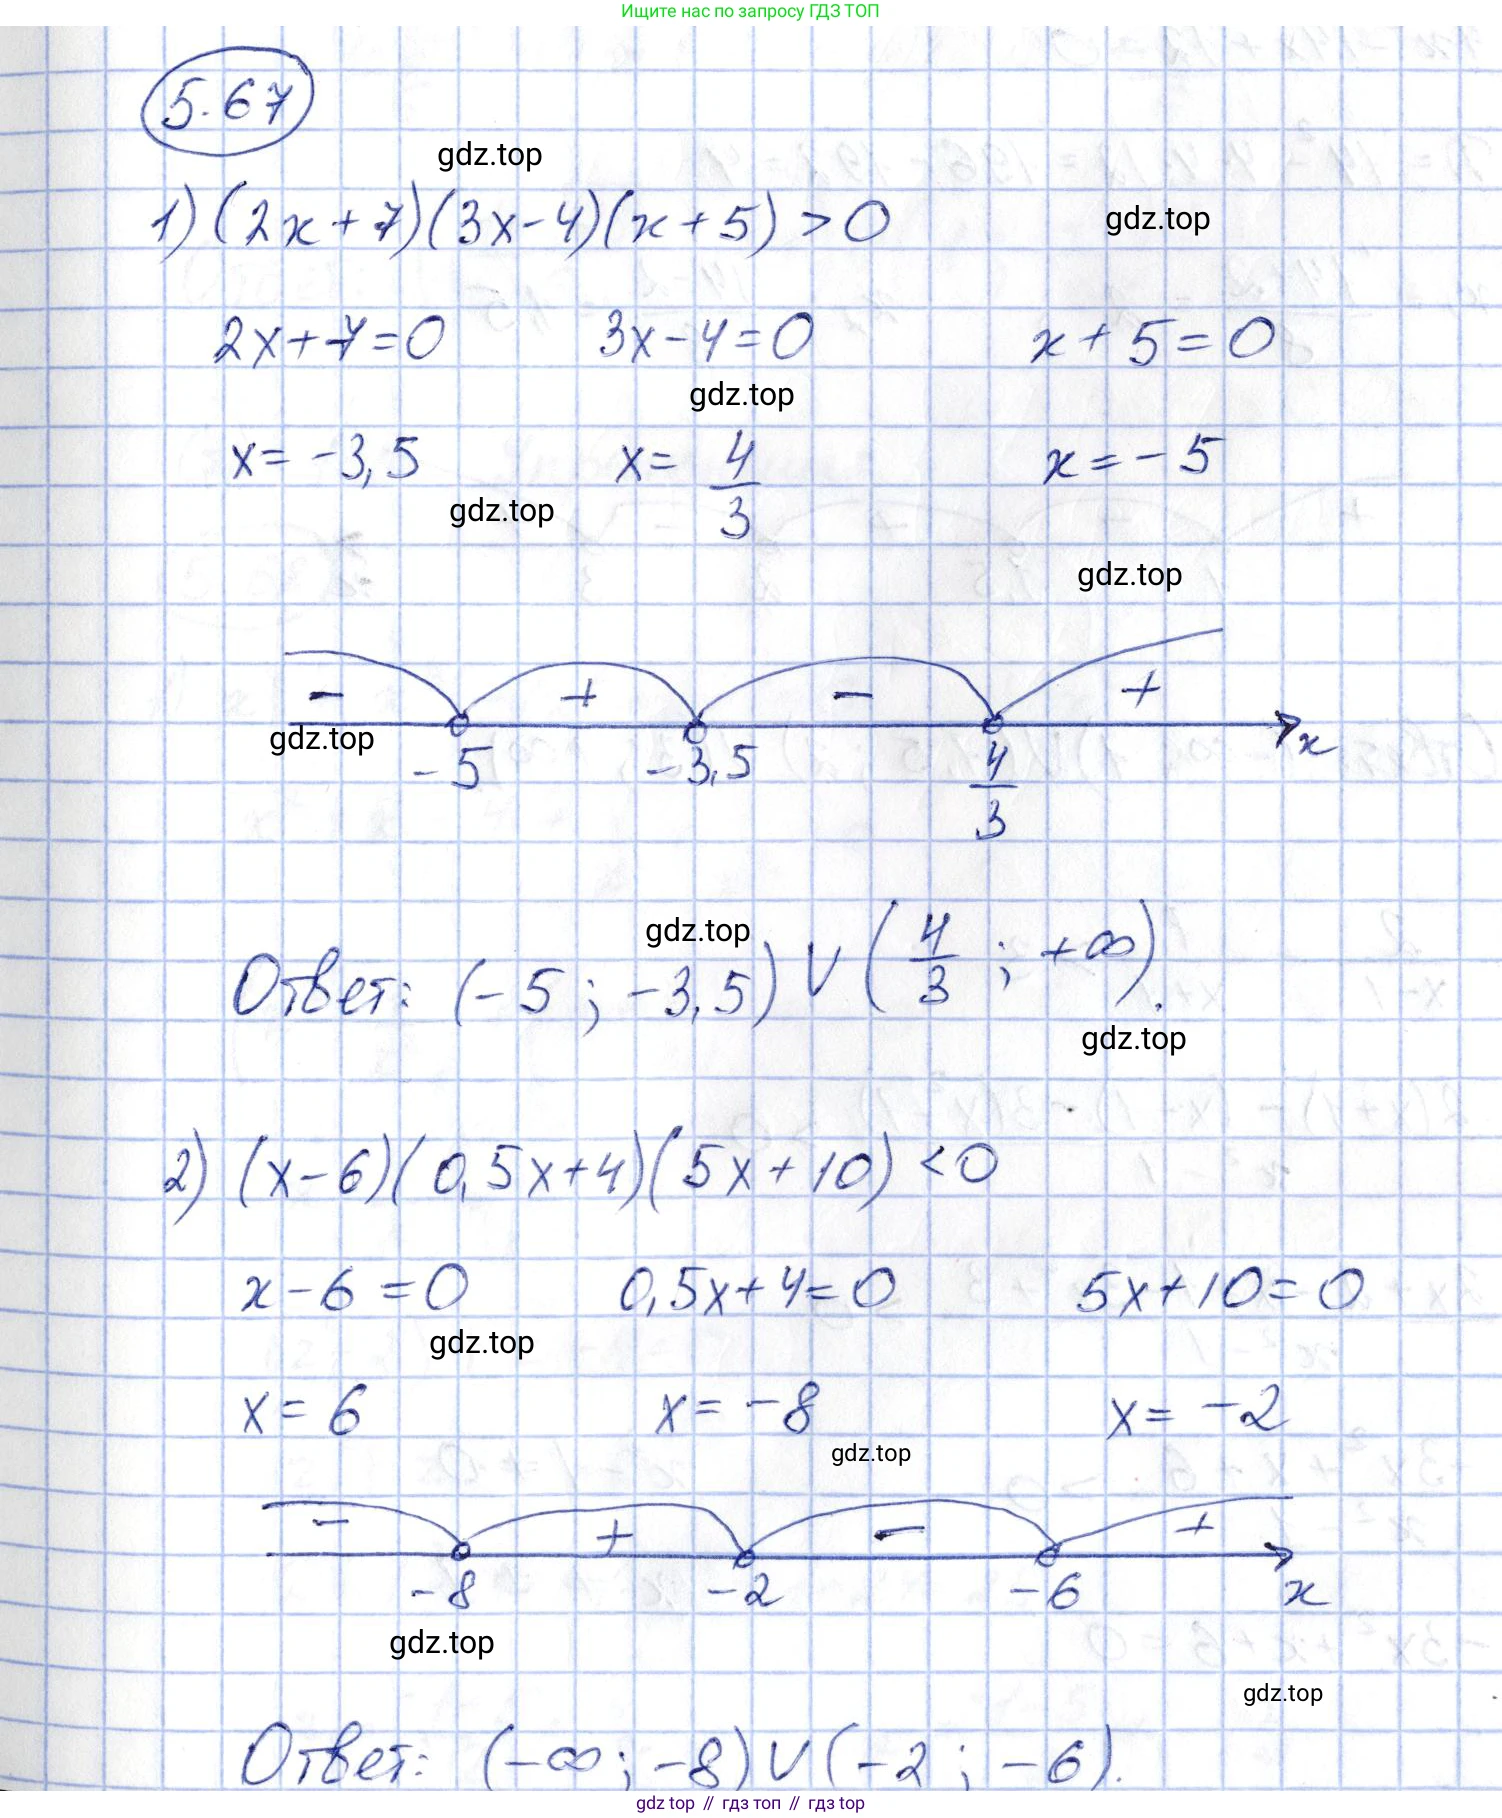 Ищите нас по запросу ГДЗ ТОП
5.67
gdz.top
1) (2x+7)(3x-4)(x+5) > 0
gdz.top
2x+7=0 3x-4=0 x+5=0
gdz.top
x= -3,5 x= 4/3 x=-5
gdz.top
gdz.top
- + - +
gdz.top
-5 -3,5 4/3 x
gdz.top
Ответ: (-5; -3,5) ∪ (4/3; +∞).
gdz.top
2) (x-6)(0,5x+4)(5x+10) < 0
x-6=0 0,5x+4=0 5x+10=0
gdz.top
x=6 x= -8 x= -2
gdz.top
- + - +
-8 -2 -6 x
gdz.top
gdz.top
Ответ: (-∞; -8) ∪ (-2; -6).
gdz top // гдз топ // гдз top